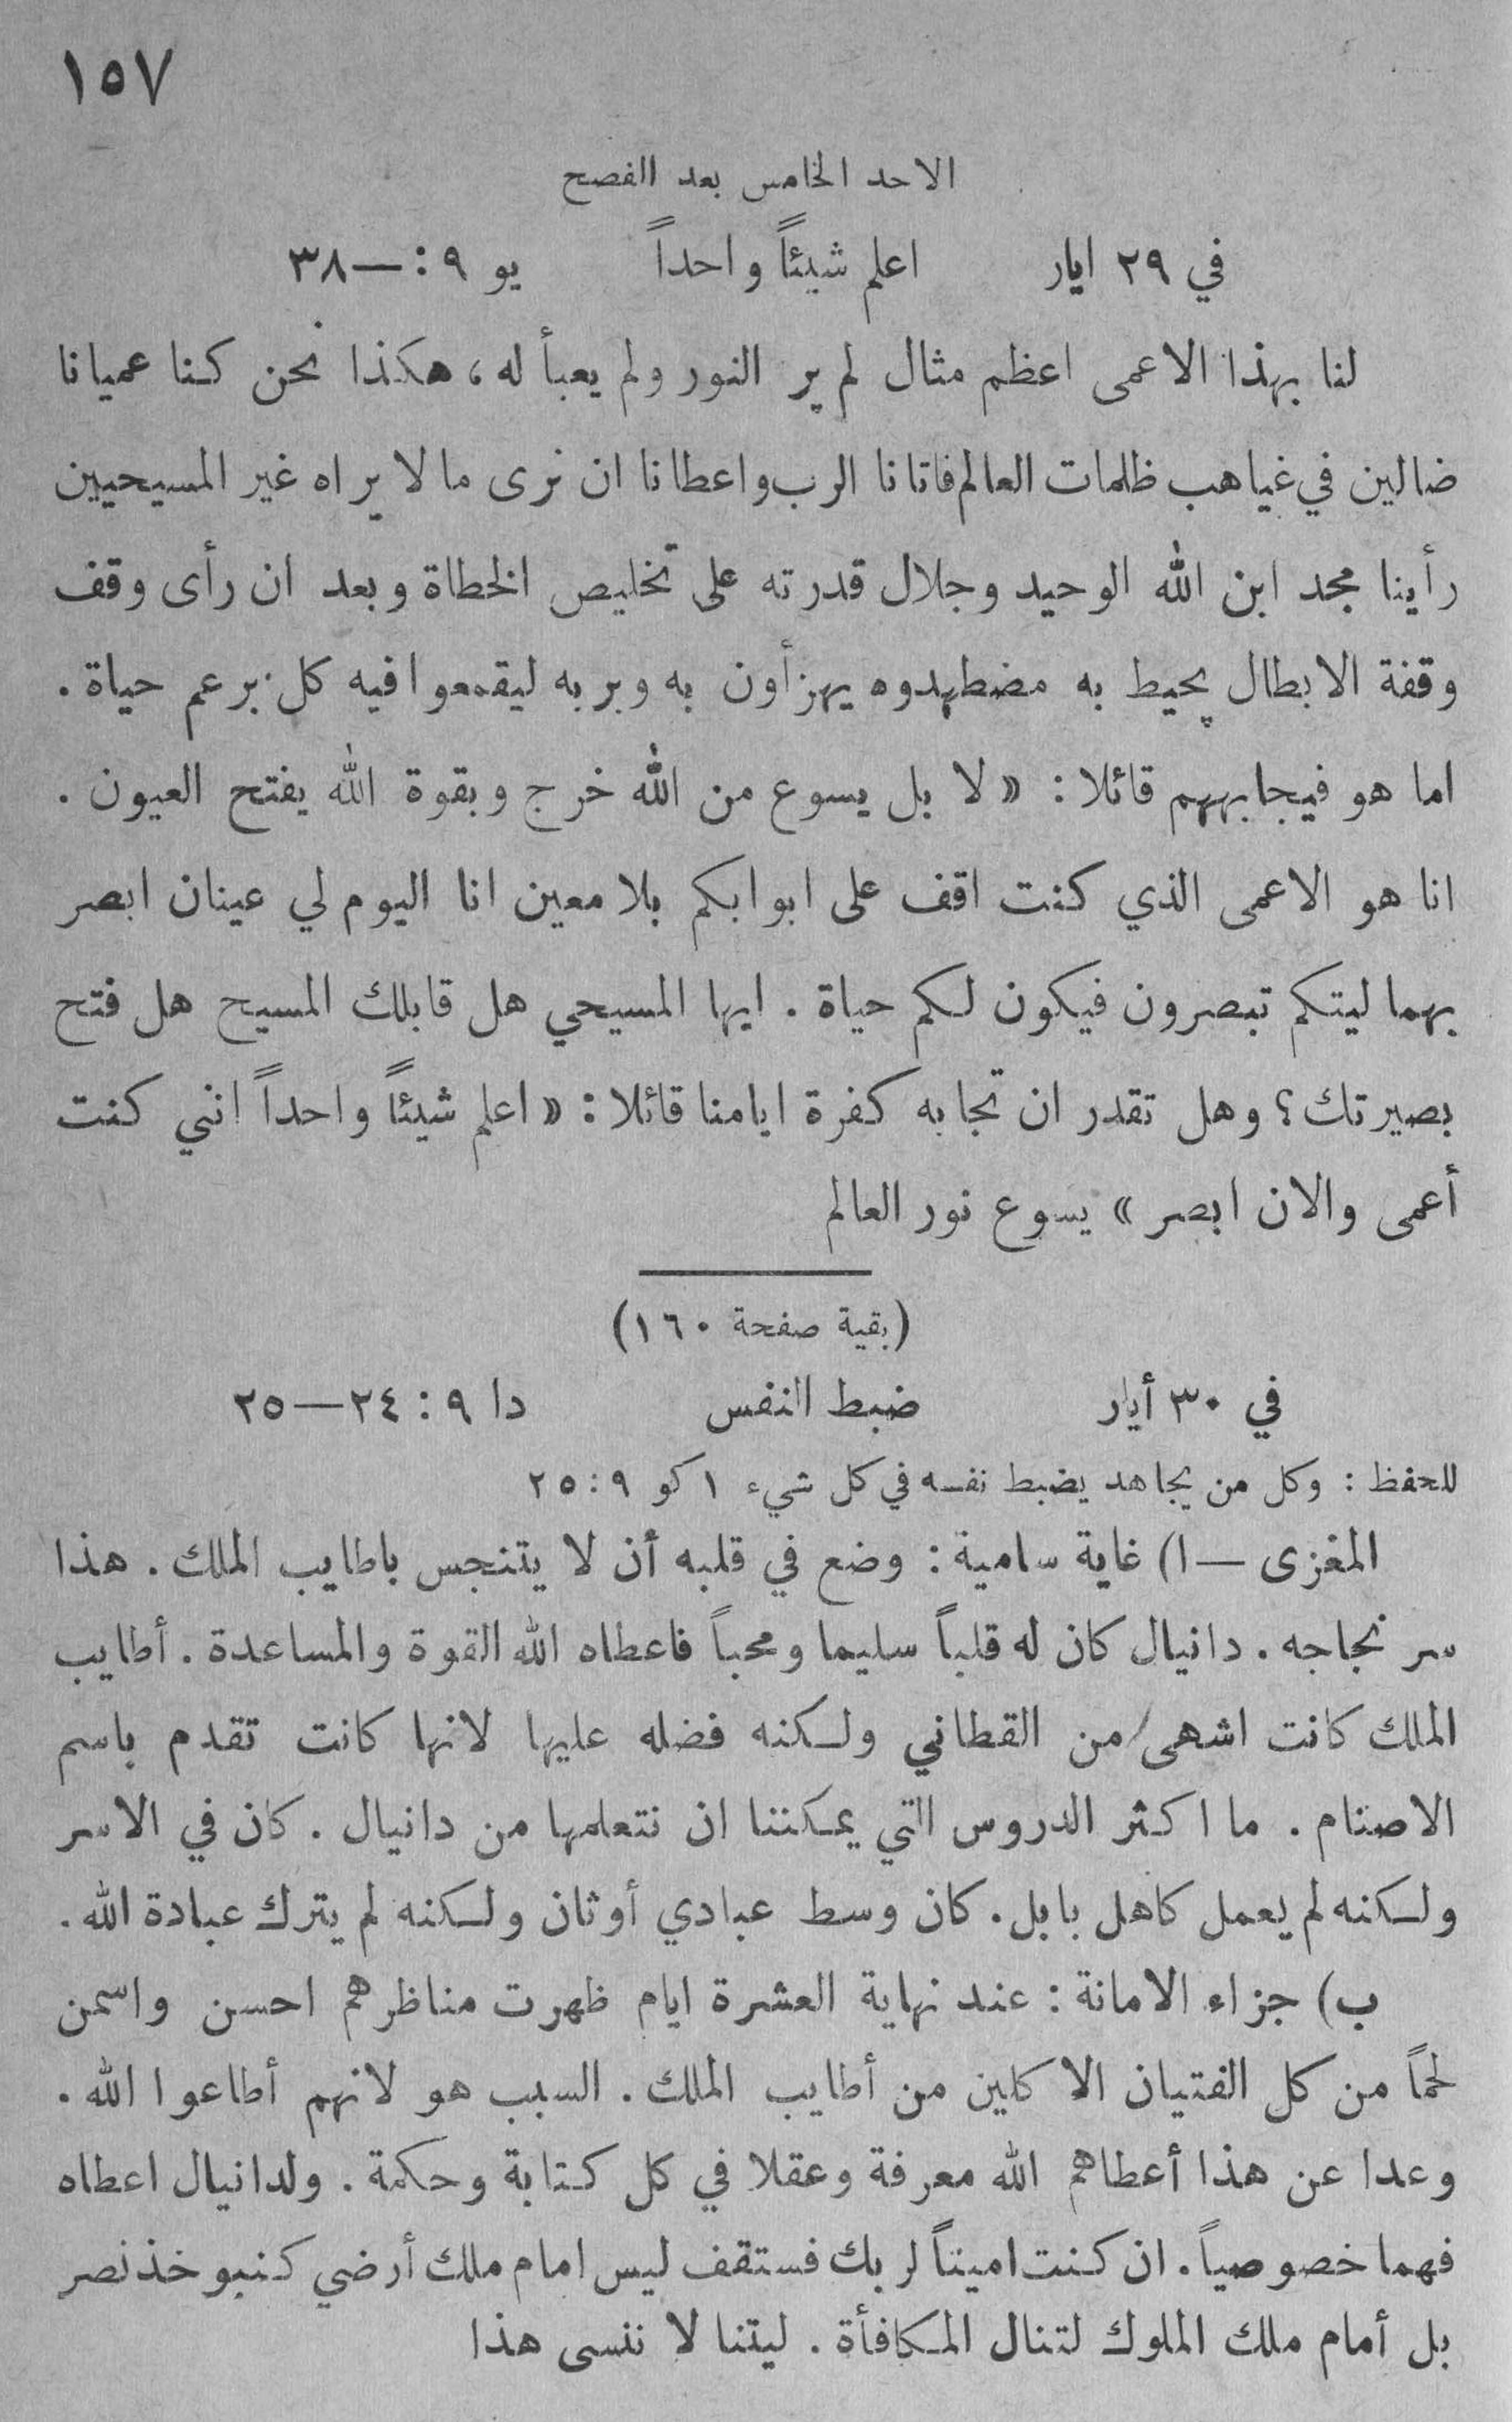 ١٥٧
الاحد الخامس بعد الفصح
في ٢٩ ايار اعلم شيئاً واحداً يو ٩ : —٣٨
لنا بهذا الاعمى اعظم مثال لم ير النور ولم يعبأ له، هكذا نحن كنا عميانا
ضالين في غياهب ظلمات العالم فاتانا الرب واعطانا ان نرى ما لا يراه غير المسيحيين
رأينا مجد ابن الله الوحيد وجلال قدرته على تخليص الخطاة وبعد ان رأى وقف
وقفة الابطال يحيط به مضطهدوه يهزأون به وبربه ليقمعوا فيه كل برعم حياة .
اما هو فيجابههم قائلا : « لا بل يسوع من الله خرج وبقوة الله يفتح العيون .
انا هو الاعمى الذي كنت اقف على ابوابكم بلا معين انا اليوم لي عينان ابصر
بهما ليتكم تبصرون فيكون لكم حياة . ايها المسيحي هل قابلك المسيح هل فتح
بصيرتك ؟ وهل تقدر ان تجابه كفرة ايامنا قائلا : « اعلم شيئاً واحداً انني كنت
أعمى والان ابصر » يسوع نور العالم
(بقية صفحة ١٦٠)
في ٣٠ أيار ضبط النفس دا ٩ : ٢٤—٢٥
للحفظ : وكل من يجاهد يضبط نفسه في كل شيء ١ كو ٩ : ٢٥
المغزى —ا) غاية سامية : وضع في قلبه أن لا يتنجس باطايب الملك . هذا
سر نجاجه . دانيال كان له قلباً سليما ومحباً فاعطاه الله القوة والمساعدة . أطايب
الملك كانت اشهى من القطاني ولكنه فضله عليها لانها كانت تقدم باسم
الاصنام . ما اكثر الدروس التي يمكننا ان نتعلمها من دانيال . كان في الاسر
ولكنه لم يعمل كاهل بابل . كان وسط عبادي أوثان ولكنه لم يترك عبادة الله .
ب) جزاء الامانة : عند نهاية العشرة ايام ظهرت مناظرهم احسن واسمن
لحماً من كل الفتيان الاكلين من أطايب الملك . السبب هو لانهم أطاعوا الله .
وعدا عن هذا أعطاهم الله معرفة وعقلا في كل كتابة وحكمة . ولدانيال اعطاه
فهما خصوصياً . ان كنت اميناً لربك فستقف ليس امام ملك أرضي كنبوخذنصر
بل أمام ملك الملوك لتنال المكافأة . ليتنا لا ننسى هذا